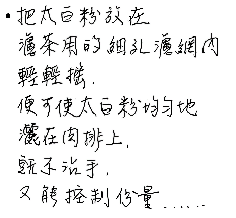 •把太白粉放在
濾茶用的細孔濾網內
輕輕搖.
便可使太白粉均勻地
灑在肉排上.
既不沾手.
又能控制份量......